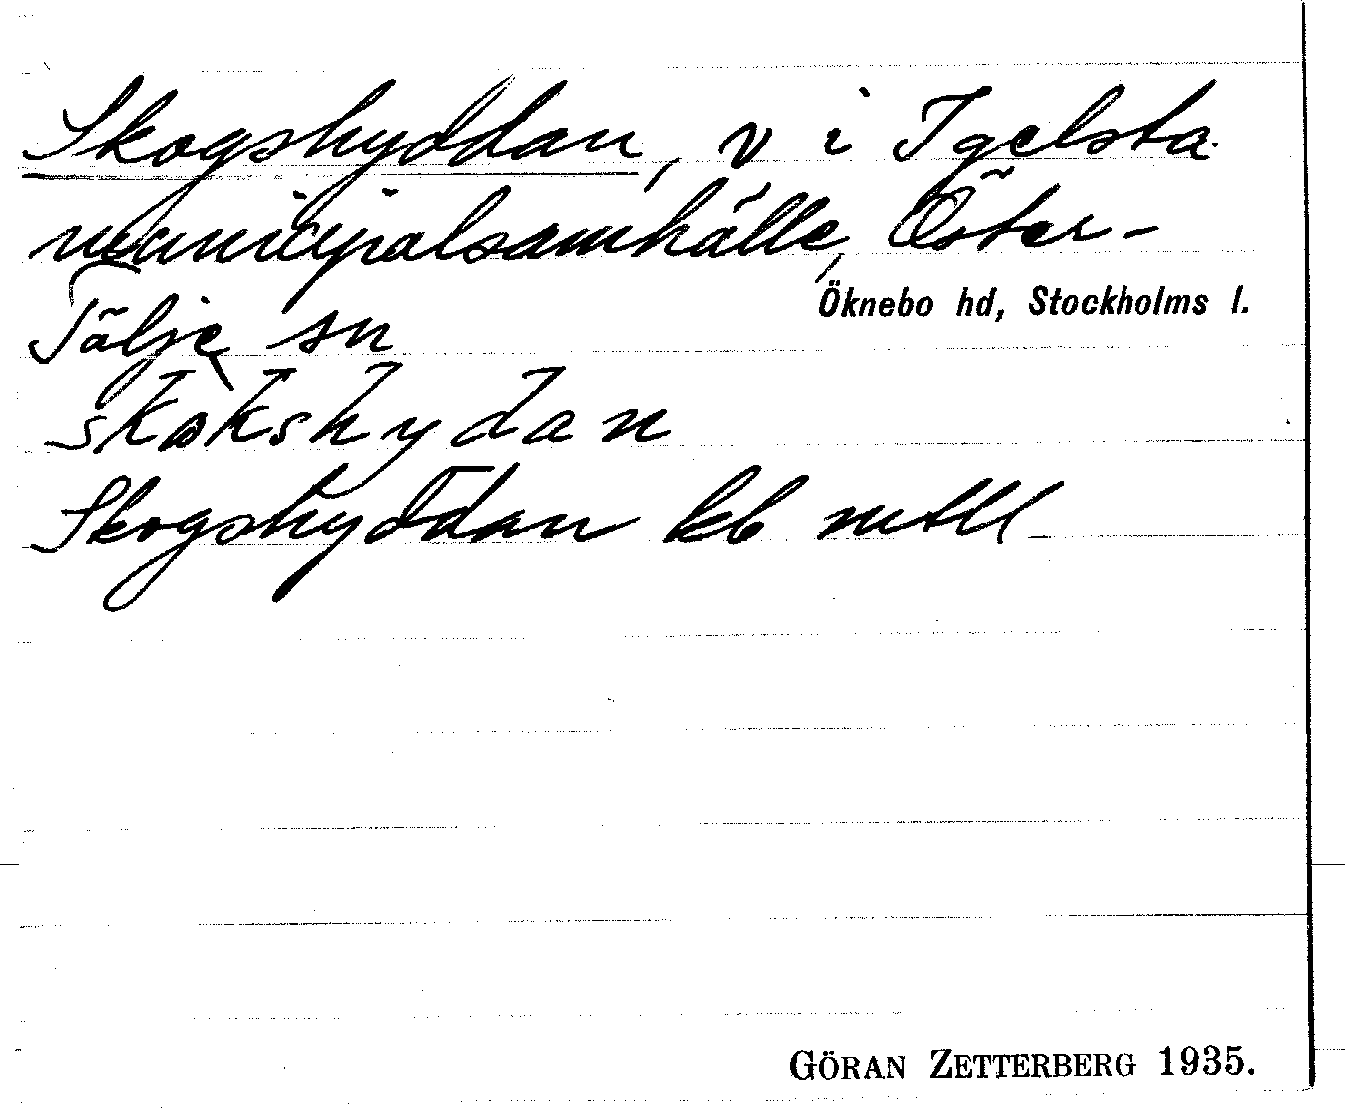 Skogshyddan, v i Igelsta
municipalsamhälle, Öster-
Tälje sn
Öknebo hd, Stockholms l.
skokshydan
Skogshyddan kb mtll
GÖRAN ZETTERBERG 1935.